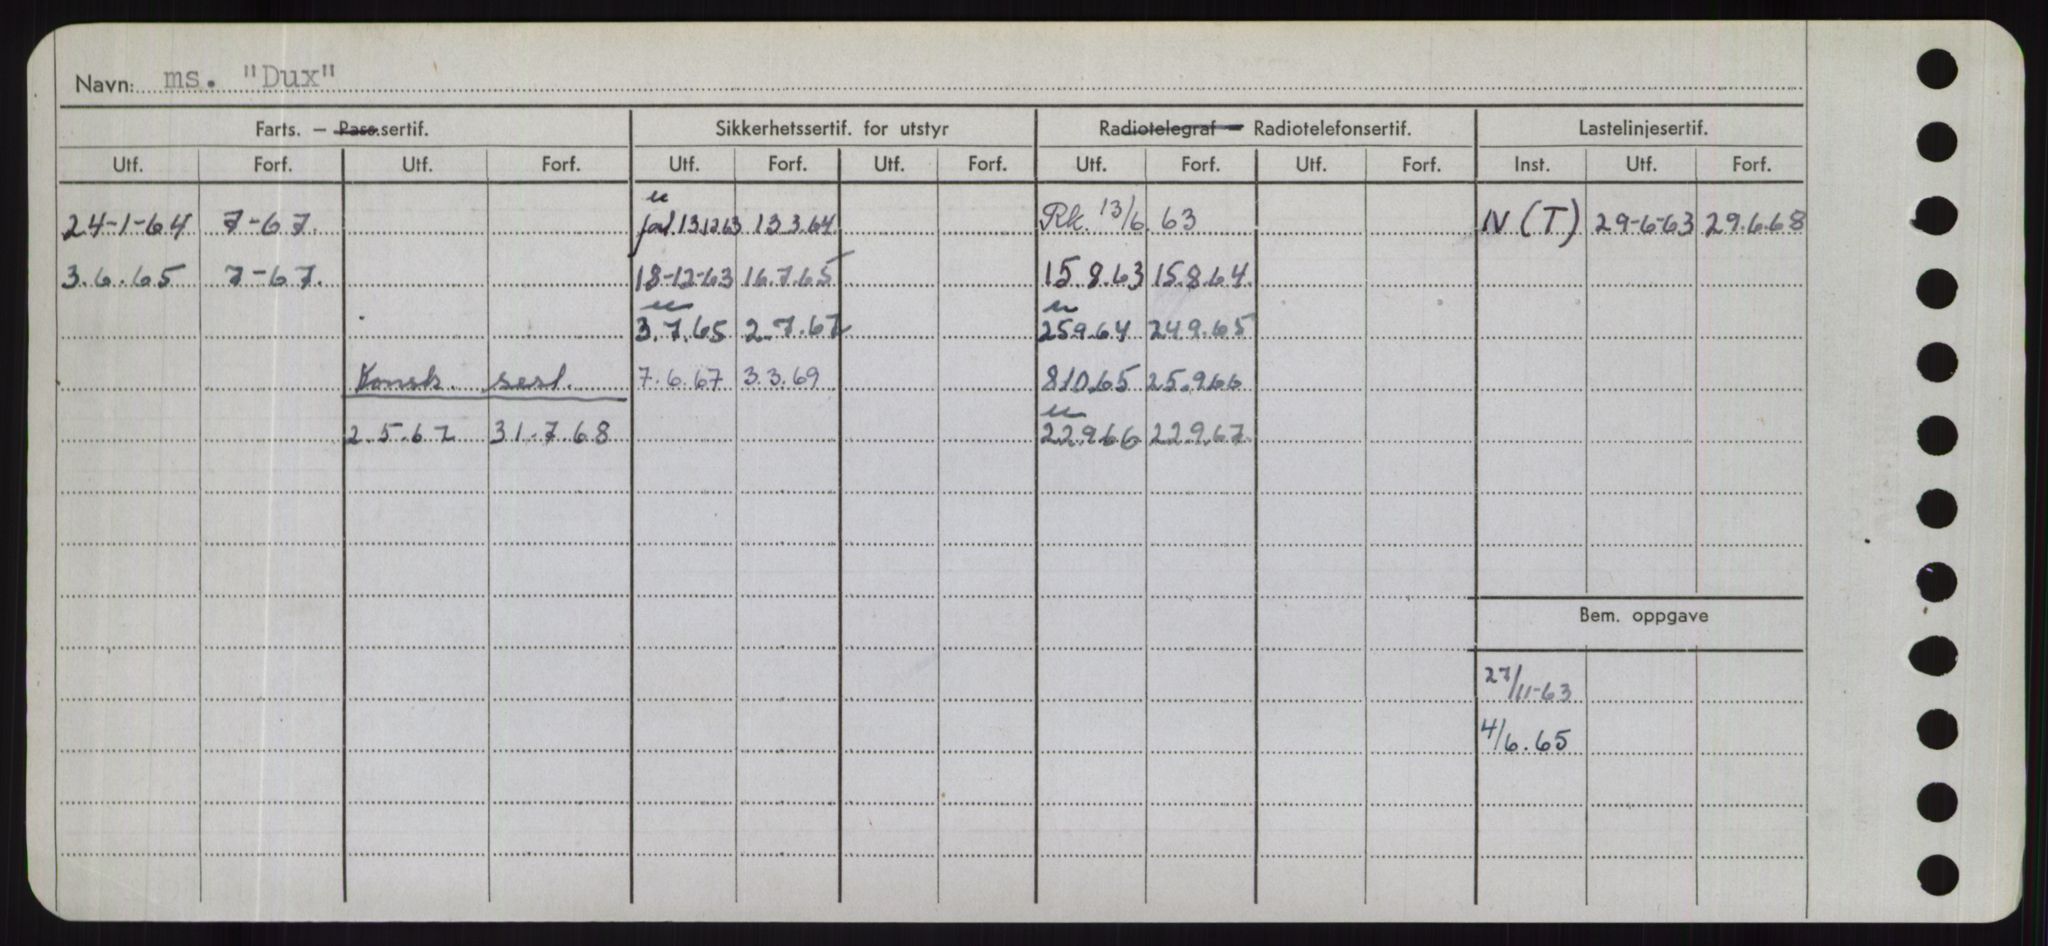 Navn: ms. "Dux"
Farts. — Pass.sertif. Sikkerhetssertif. for utstyr Radiotelegraf — Radiotelefonsertif. Lastelinjesertif.
Utf. Forf. Utf. Forf. Utf. Forf. Utf. Forf. Utf. Forf. Utf. Forf. Inst. Utf. Forf.
24-1-64 7-67. 13.12.63 13.3.64 Rk. 13/6.63 IV (T) 29-6-63 29.6.68
3.6.65 7-67. 18-12-63 16.7.65 15.8.63 15.8.64.
3.7.65 2.7.67 25.9.64 24.9.65
Konsk. sert. 7.6.67 3.3.69 8.10.65 25.9.66
2.5.67 31.7.68 22.9.66 22.9.67.
Bem. oppgave
27/11-63
4/6.65